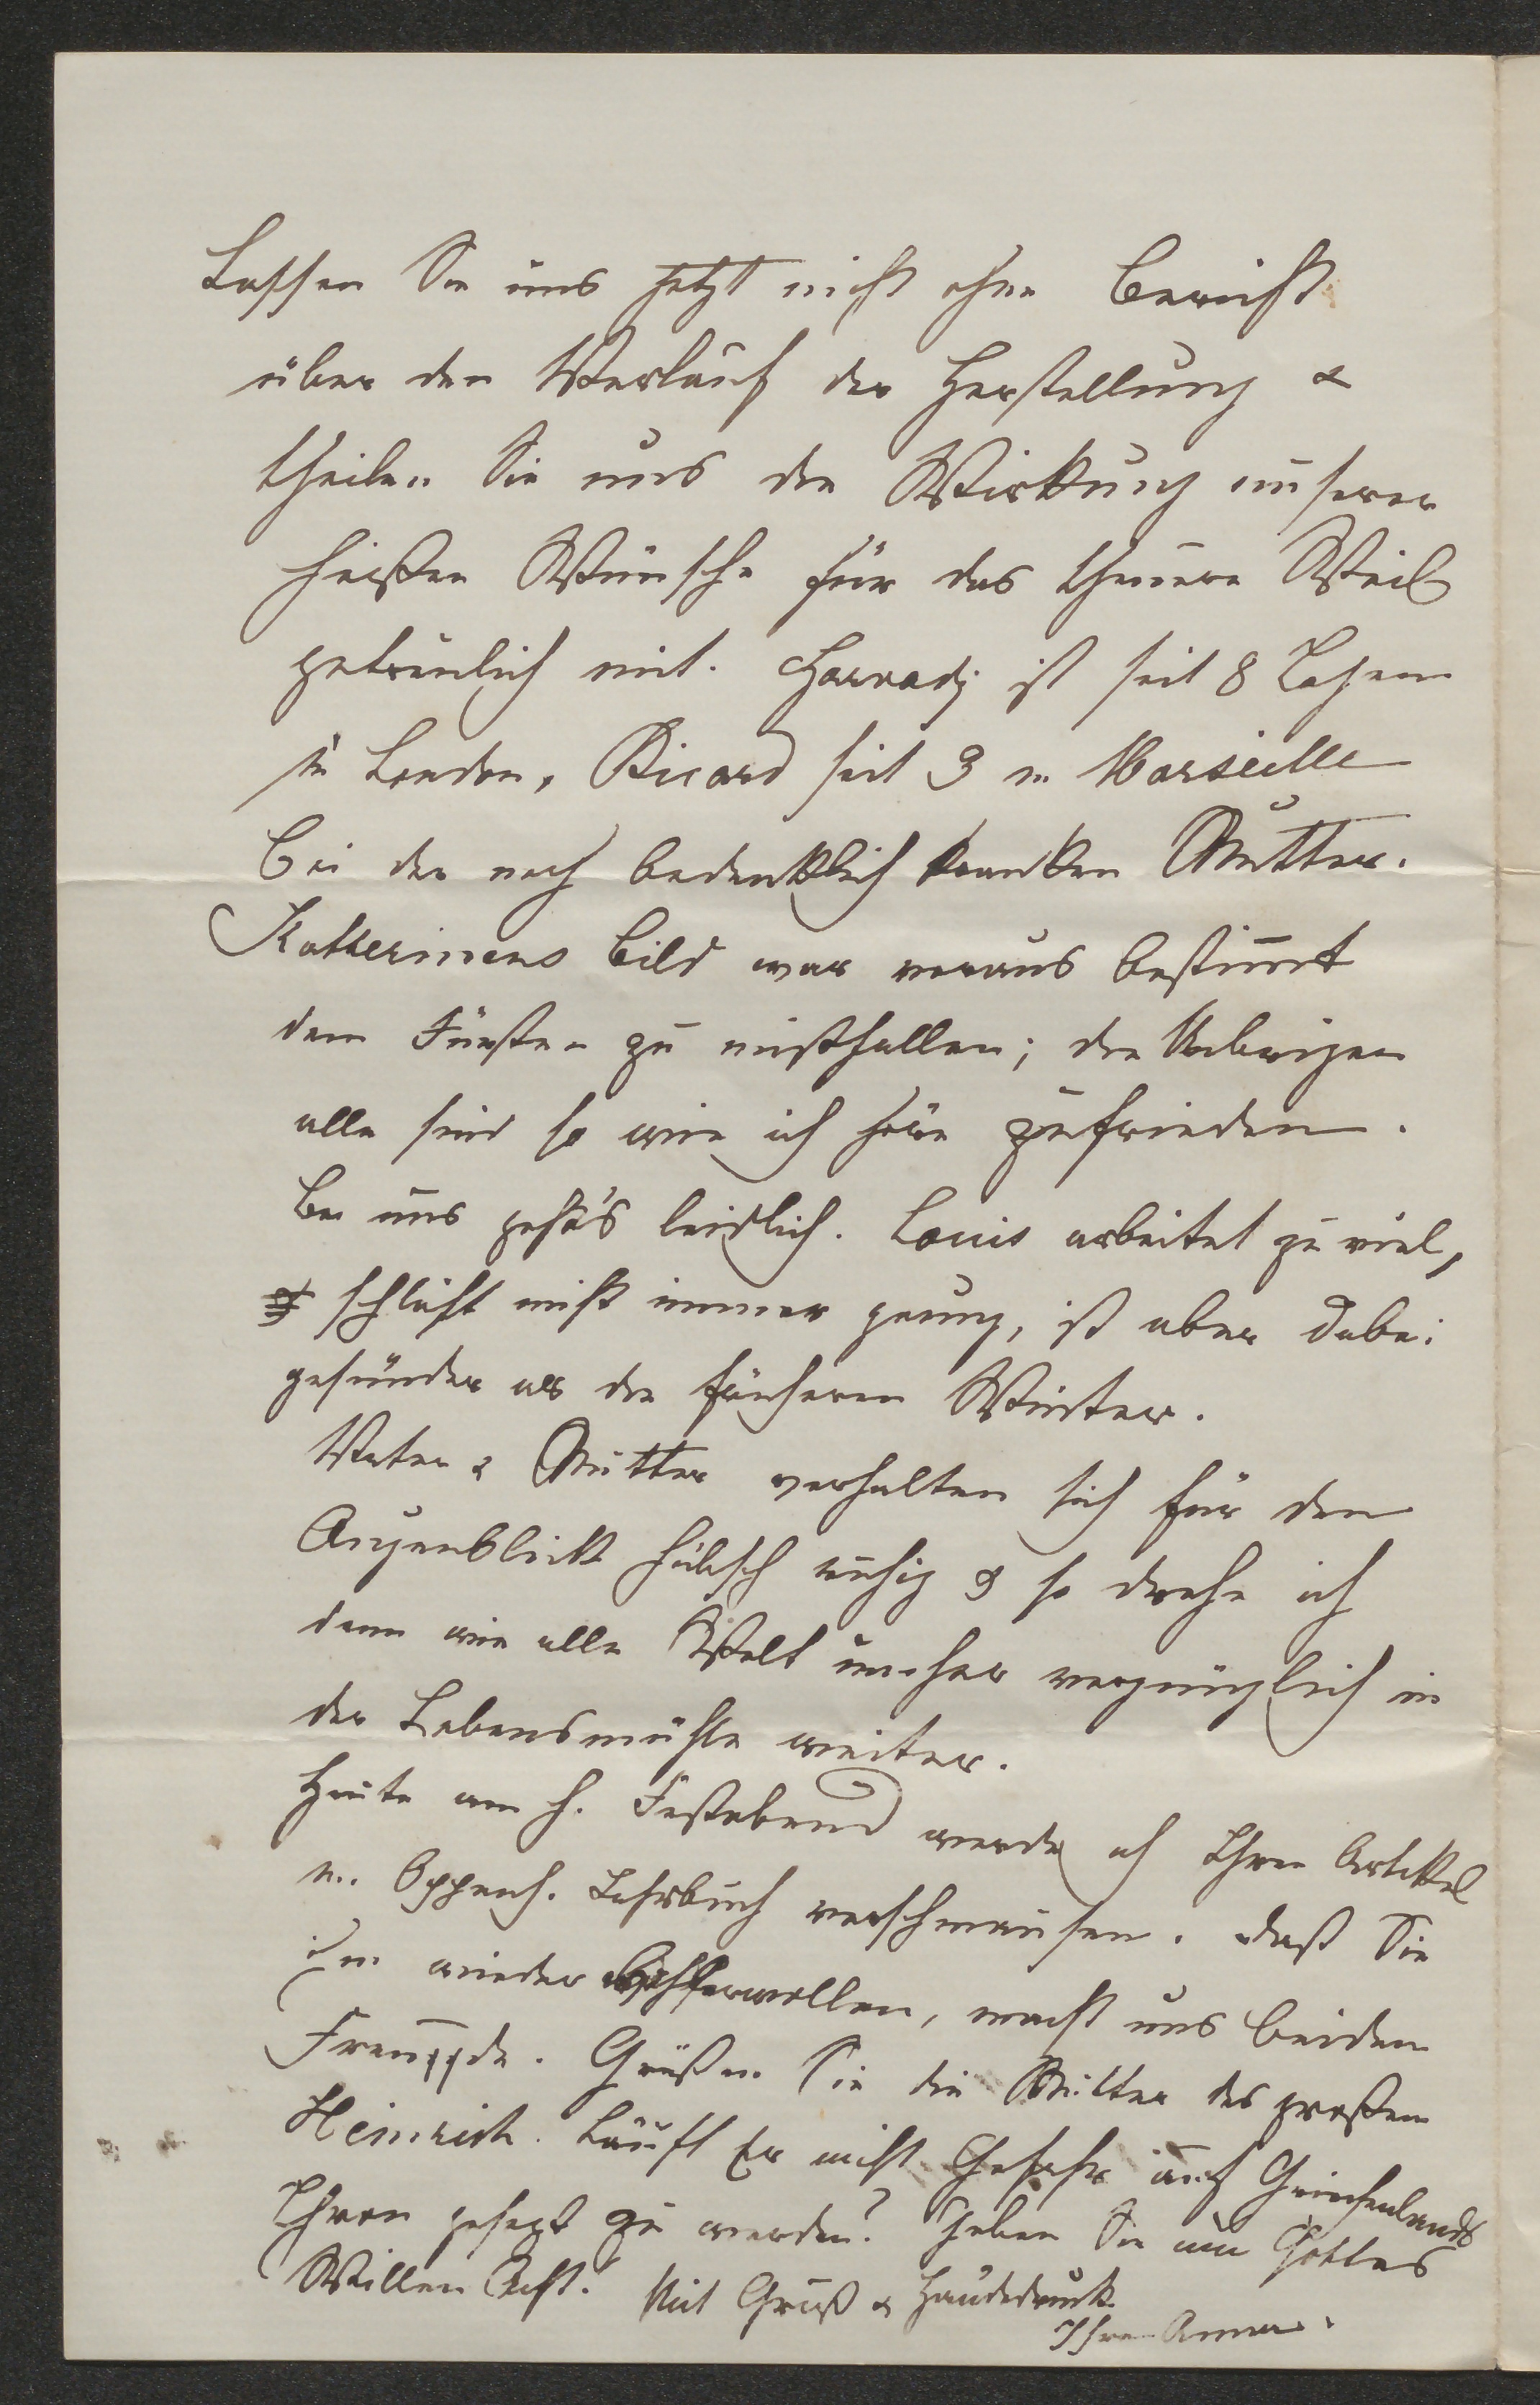 Lassen Sie uns jetzt nicht ohne Bericht
über den Verlauf der Herstellung &
theilen Sie uns die Wirkung unserer
heißen Wünsche für das theuere Weib
getreulich mit. ist seit 8 Tagen
in London, Ricard seit 3 in Marseille
bei der noch bedenklich kranken Mutter.
Katherinens Bild war voraus bestimt
dem Fürsten zu mißfallen; die Uebrigen
alle sind so wie ich höre zufrieden.
Bei uns geht's leidlich. Louis arbeitet zu viel,
schläft nicht immer genug, ist aber dabei
gesünder als die früheren Winter.
Vater & Mutter verhalten sich für den
Augenblick hübsch ruhig & so drehe ich
denn wie alle Welt umher vergnüglich in
der Lebensmühle weiter.
Heute am h. Festabend werde ich Ihren Artikel
v. Oppenh. Lehrbuch verschmausen. Daß Sie
ihm wieder wollen, macht uns beiden
Freude. Grüßen Sie die Mutter des großen
Heinrich. Läuft Er nicht Gefahr auf Griechenlands
Thron gesezt zu werden? Geben Sie um Gottes
Willen Acht. Mit Gruß & Händedruck
Ihre Anna.